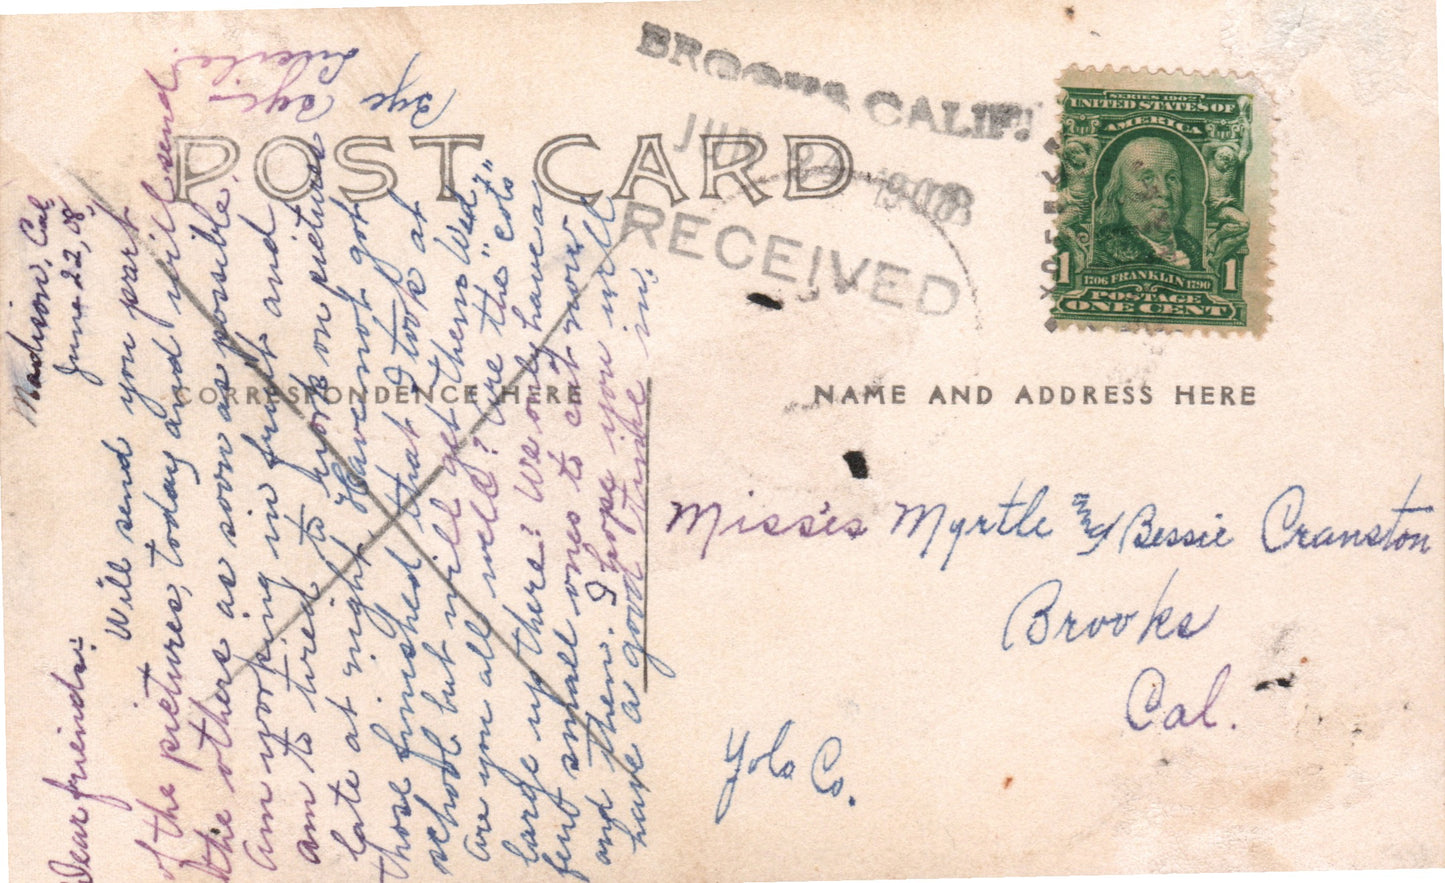 POST CARD
CORRESPONDENCE HERE
NAME AND ADDRESS HERE
BROOKS CALIF.
JUN 24 1908
RECEIVED
SERIES 1902
UNITED STATES OF
AMERICA
1 1706 FRANKLIN 1790 1
POSTAGE
ONE CENT
Madison, Cal.
June 22, 08.
Dear friends:-
Will send you part
of the pictures, today and will send
the others as soon as possible.
am working in fruit and
am to tired to work on pictures
late at night. Have not got
those finished that I took at
school but will get them Wed.
Are you all well? Are the "cots"
large up there? We only have a
few small ones to cut now
and then. I hope you will
have a good time in.
Bye Bye
Misses Myrtle and Bessie Cranston
Brooks
Cal.
Yolo Co.